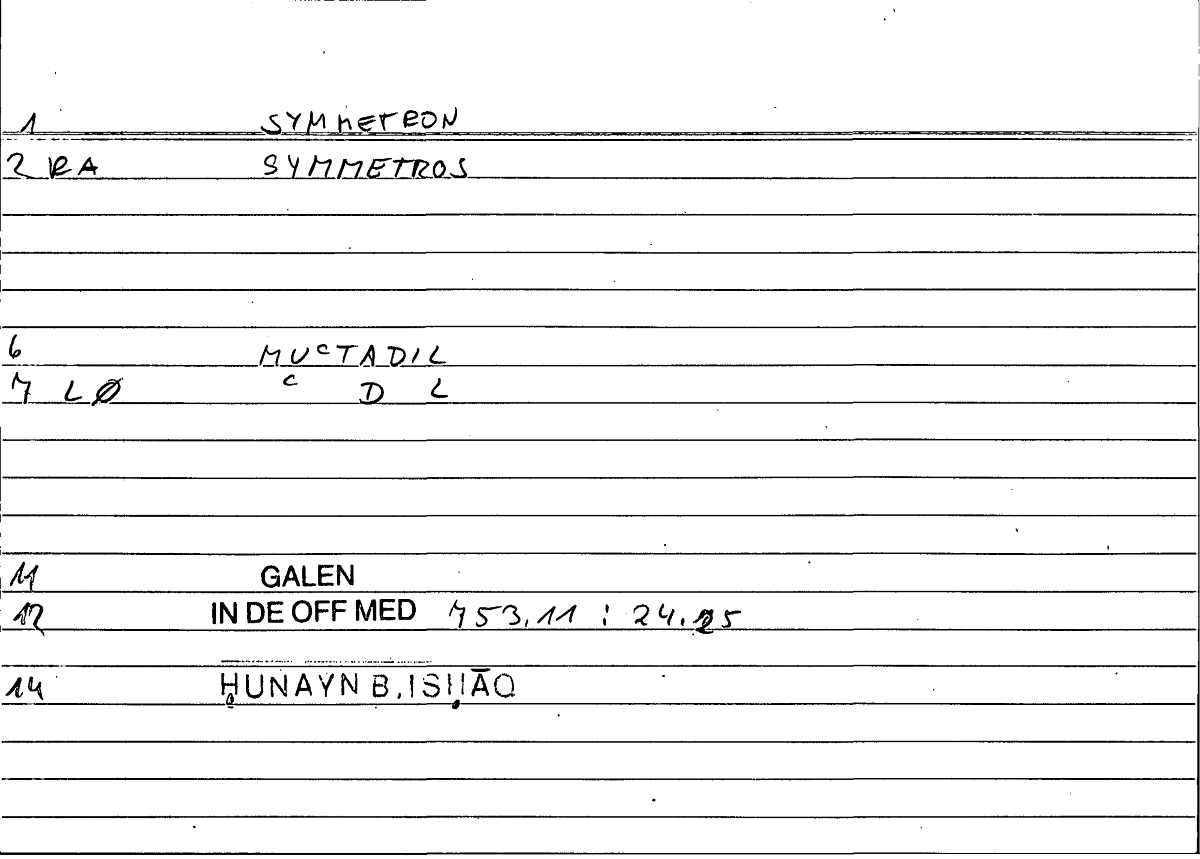 1 SYMMETRON
2 RA SYMMETROS
6 MUᶜTADIL
7 LØ ᶜ D L
11 GALEN
12 IN DE OFF MED 753,11 : 24.25
14 ḤUNAYN B. ISḤĀQ